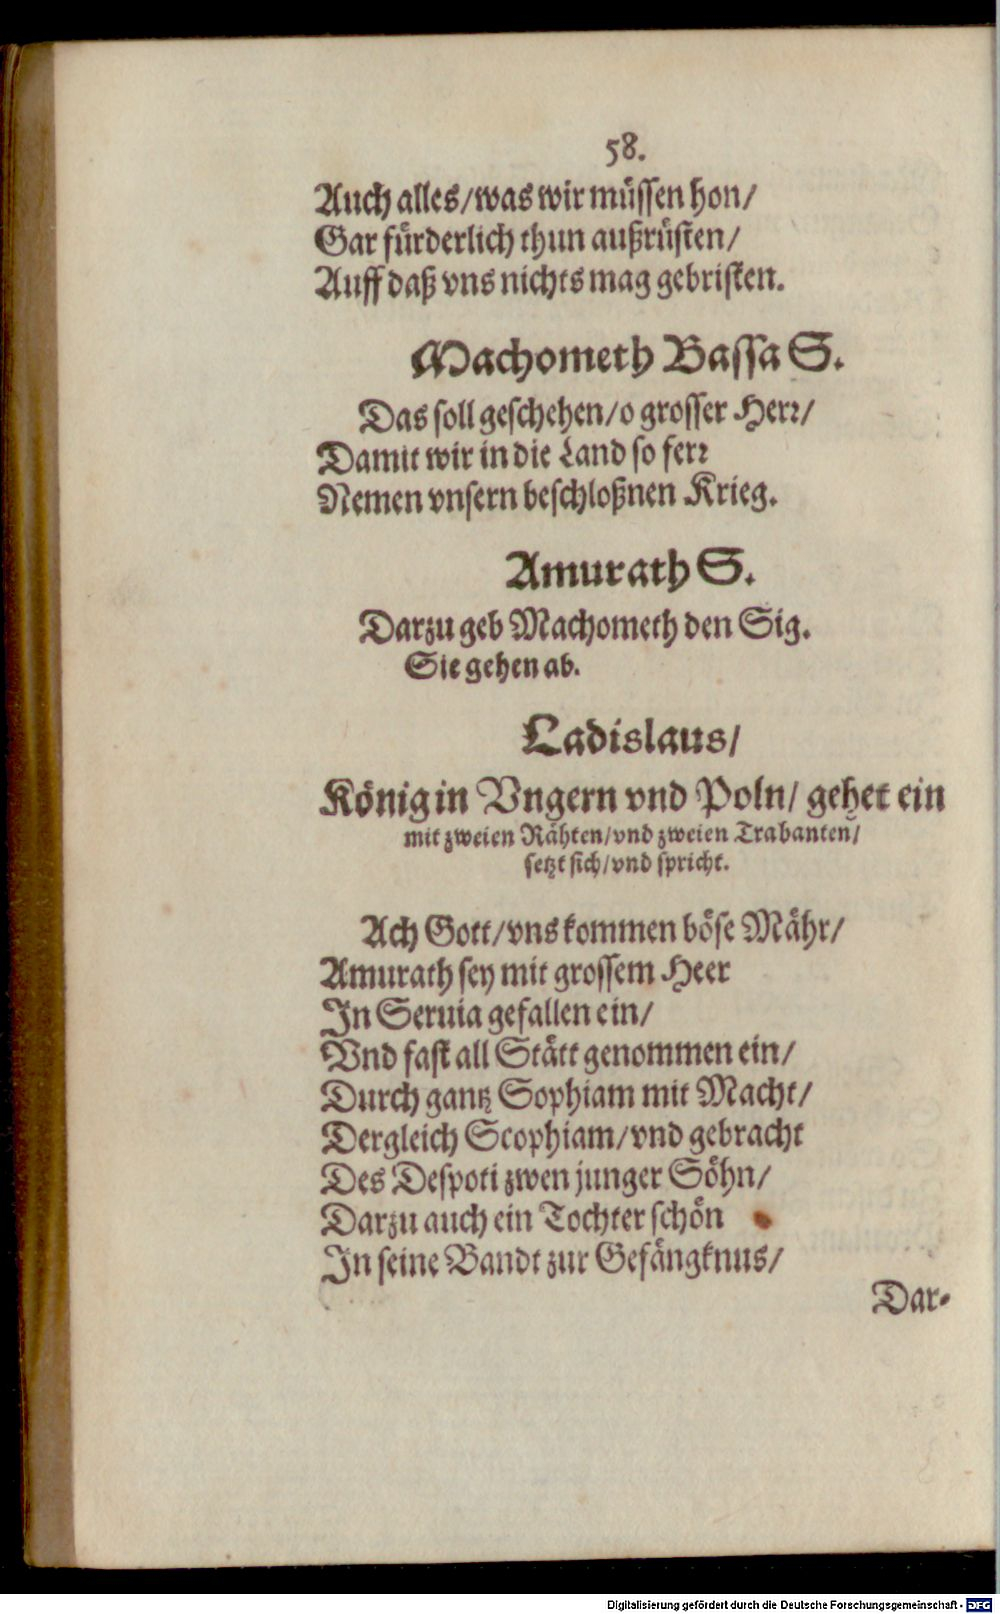 58.
Auch alles/was wir müssen hon/
Gar fürderlich thun außrüsten/
Auff daß vns nichts mag gebristen.
Machometh Bassa S.
Das soll geschehen/o grosser Herr/
Damit wir in die Land so ferr
Nemen vnsern beschloßnen Krieg.
Amurath S.
Darzu geb Machometh den Sig.
Sie gehen ab.
Ladislaus/
König in Vngern vnd Poln/ gehet ein
mit zweien Rähten/vnd zweien Trabanten/
setzt sich/vnd spricht.
Ach Gott/vns kommen böse Mähr/
Amurath sey mit grossem Heer
In Seruia gefallen ein/
Vnd fast all Stätt genommen ein/
Durch gantz Sophiam mit Macht/
Dergleich Scophiam/vnd gebracht
Des Despoti zwen junger Söhn/
Darzu auch ein Tochter schön
In seine Bandt zur Gefängknus/
Dar-
Digitalisierung gefördert durch die Deutsche Forschungsgemeinschaft - DFG